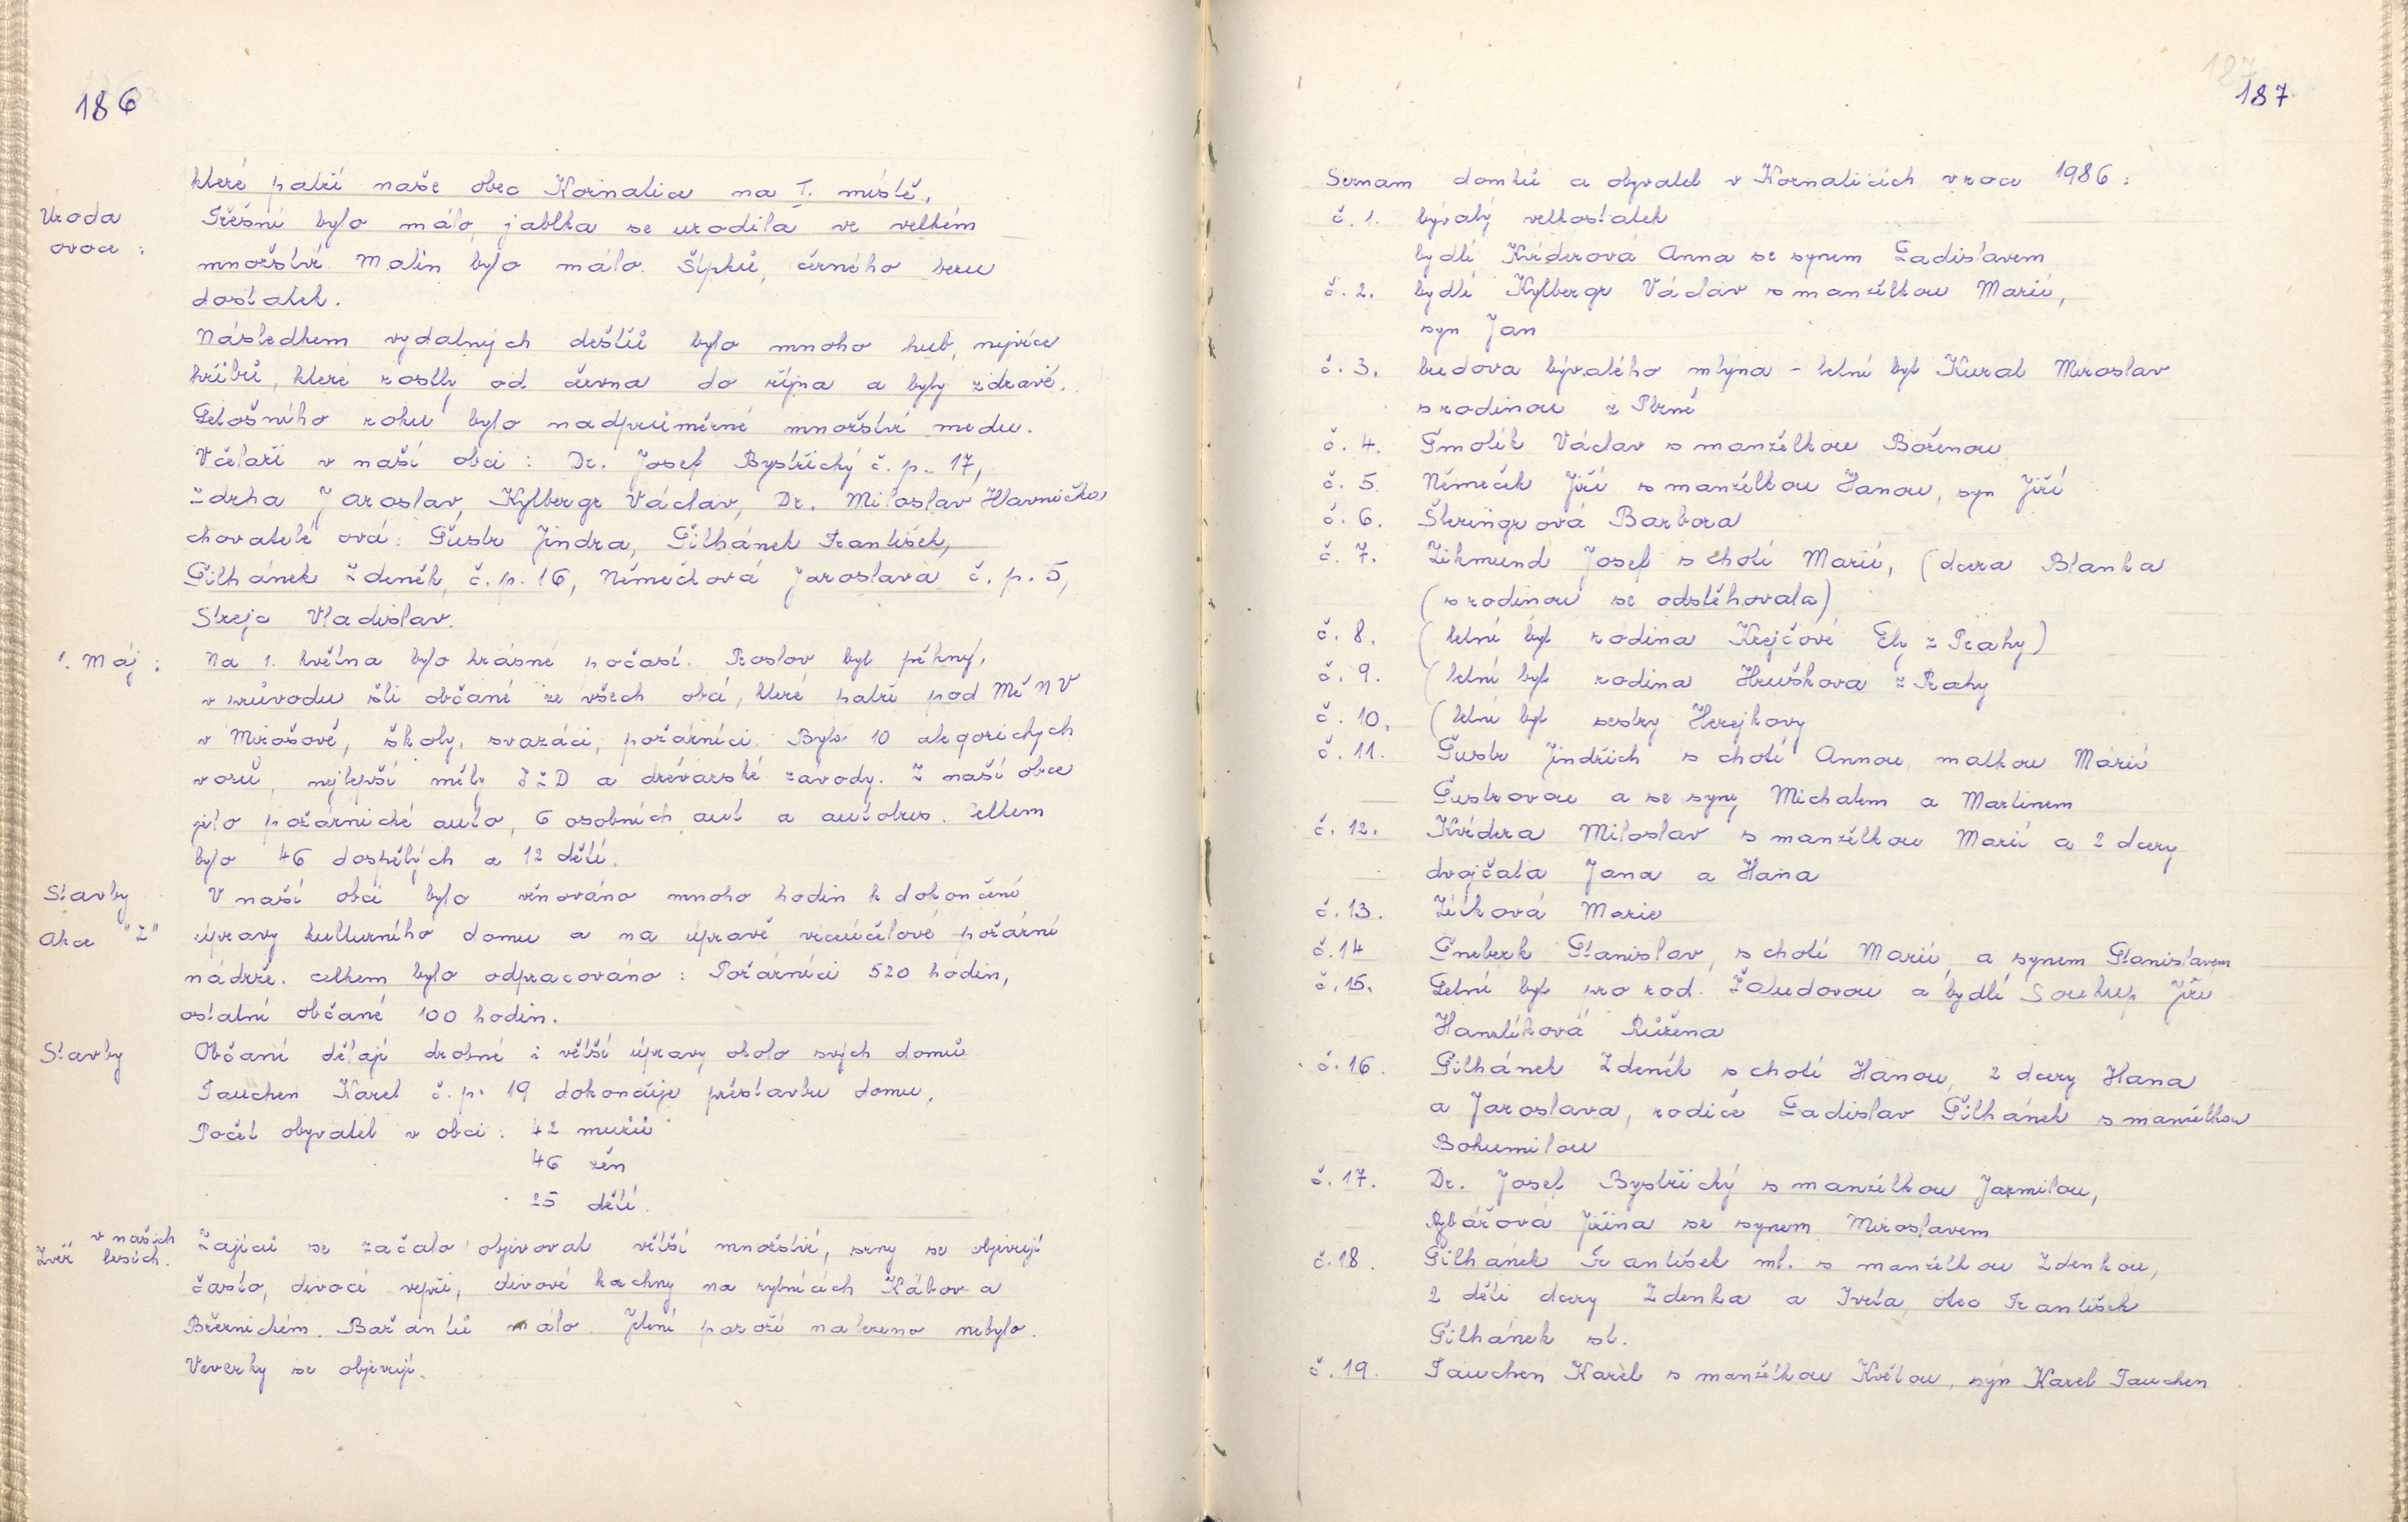 186
které patří naše obec Kornatice na I. místě.
Úroda
ovoce :
Třešní bylo málo, jablka se urodila ve velkém
množství. Malin bylo málo. Šípků, černého bezu
dostatek.
Následkem vydatných dešťů bylo mnoho hub, nejvíce
hřibů, které rostly od června do října a byly zdravé.
Letošního roku bylo nadprůměrné množství medu.
Včelaři v naší obci : Dr. Josef Bystřický č. p. 17,
Zdrha Jaroslav, Kylbergr Václav, Dr. Miloslav Hlavnička
chovatelé ovcí: Šustr Jindra, Šilhánek František,
Šilhánek Zdeněk, č. p. 16, Němečková Jaroslava č. p. 5,
Strejc Vladislav.
1. Máj :
Na 1. května bylo krásné počasí. Proslov byl pěkný,
v průvodu šli občané ze všech obcí, které patří pod MěNV
v Mirošově, školy, svazáci, požárníci. Bylo 10 alegorických
vozů, nejlepší měly JZD a dřevařské závody. Z naší obce
jelo požárnické auto, 6 osobních aut a autobus. Celkem
bylo 46 dospělých a 12 dětí.
Stavby
Akce "Z"
V naší obci bylo věnováno mnoho hodin k dokončení
úpravy kulturního domu a na úpravě víceúčelové požární
nádrže. celkem bylo odpracováno : Požárníci 520 hodin,
ostatní občané 100 hodin.
Stavby
Občané dělají drobné i větší úpravy okolo svých domů
Tauchen Karel č. p. 19 dokončuje přístavbu domu.
Počet obyvatel v obci : 42 mužů
46 žen
25 dětí.
v našich
Zvěř lesích.
Zajíců se začalo objevovat větší množství, srny se objevují
často, divocí vepři, divoké kachny na rybnících Kábov a
Březnickém. Bažantů málo. Jelení paroží nalezeno nebylo.
Veverky se objevují.
187
Seznam domků a obyvatel v Kornaticích v roce 1986 :
č. 1. bývalý velkostatek
bydlí Kviderová Anna se synem Ladislavem
č. 2. bydlí Kylbergr Václav s manželkou Marií,
syn Jan
č. 3. budova bývalého mlýna - letní byt Kural Miroslav
s rodinou z Plzně
č. 4. Smolík Václav s manželkou Boženou
č. 5. Němeček Jiří s manželkou Hanou, syn Jiří
č. 6. Šteringrová Barbora
č. 7. Zikmund Josef s chotí Marií, (dcera Blanka
(s rodinou se odstěhovala)
č. 8. (letní byt rodina Krejčové Ely z Prahy)
č. 9. (letní byt rodina Hruškova z Prahy
č. 10. (letní byt sestry Herejkovy
č. 11. Šustr Jindřich s chotí Annou, matkou Marií
Šustrovou a se syny Michalem a Martinem
č. 12. Kvidera Miloslav s manželkou Marií a 2 dcery
dvojčata Jana a Hana
č. 13. Zítková Marie
č. 14 Šneberk Stanislav, s chotí Marií, a synem Stanislavem
č. 15. Letní byt pro rod. Žaludovou a bydlí Soukup Jiří
Hanzlíková Růžena
č. 16. Šilhánek Zdeněk s chotí Hanou, 2 dcery Hana
a Jaroslava, rodiče Ladislav Šilhánek s manželkou
Bohumilou
č. 17. Dr. Josef Bystřický s manželkou Jarmilou,
Rybářová Jiřina se synem Miroslavem
č. 18. Šilhánek František ml. s manželkou Zdenkou,
2 děti dcery Zdenka a Iveta, otec František
Šilhánek st.
č. 19. Tauchen Karel s manželkou Květou, syn Karel Tauchen